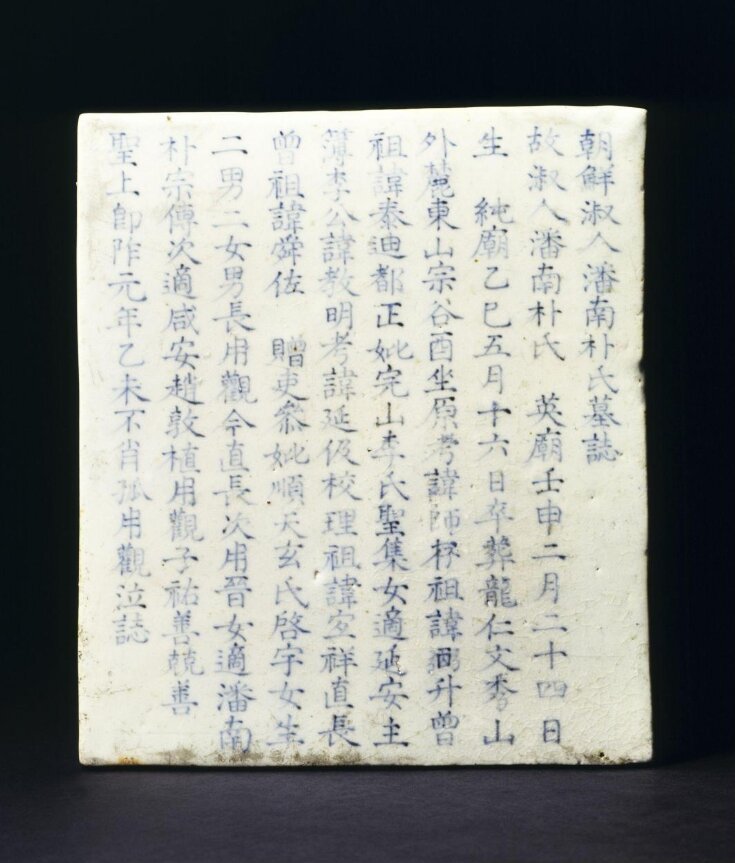 朝鮮淑人潘南朴氏墓誌
故淑人潘南朴氏 英廟壬申二月二十四日
生 純廟乙巳五月十六日卒葬龍仁文秀山
外麓東山宗谷酉坐原考諱師 祖諱弼 升曾
祖諱泰迪都正妣完山李氏聖集女適延安主
簿李公諱敎明考諱延伋校理祖諱 祥直長
曾祖諱舜佐 贈吏叅妣順天玄氏啓宇女生
二男二女男長用觀今直長次用晉女適潘南
朴宗傳次適咸安趙敦植用觀子祐善兢善
聖上卽阼元年乙未不肖孤用觀泣誌